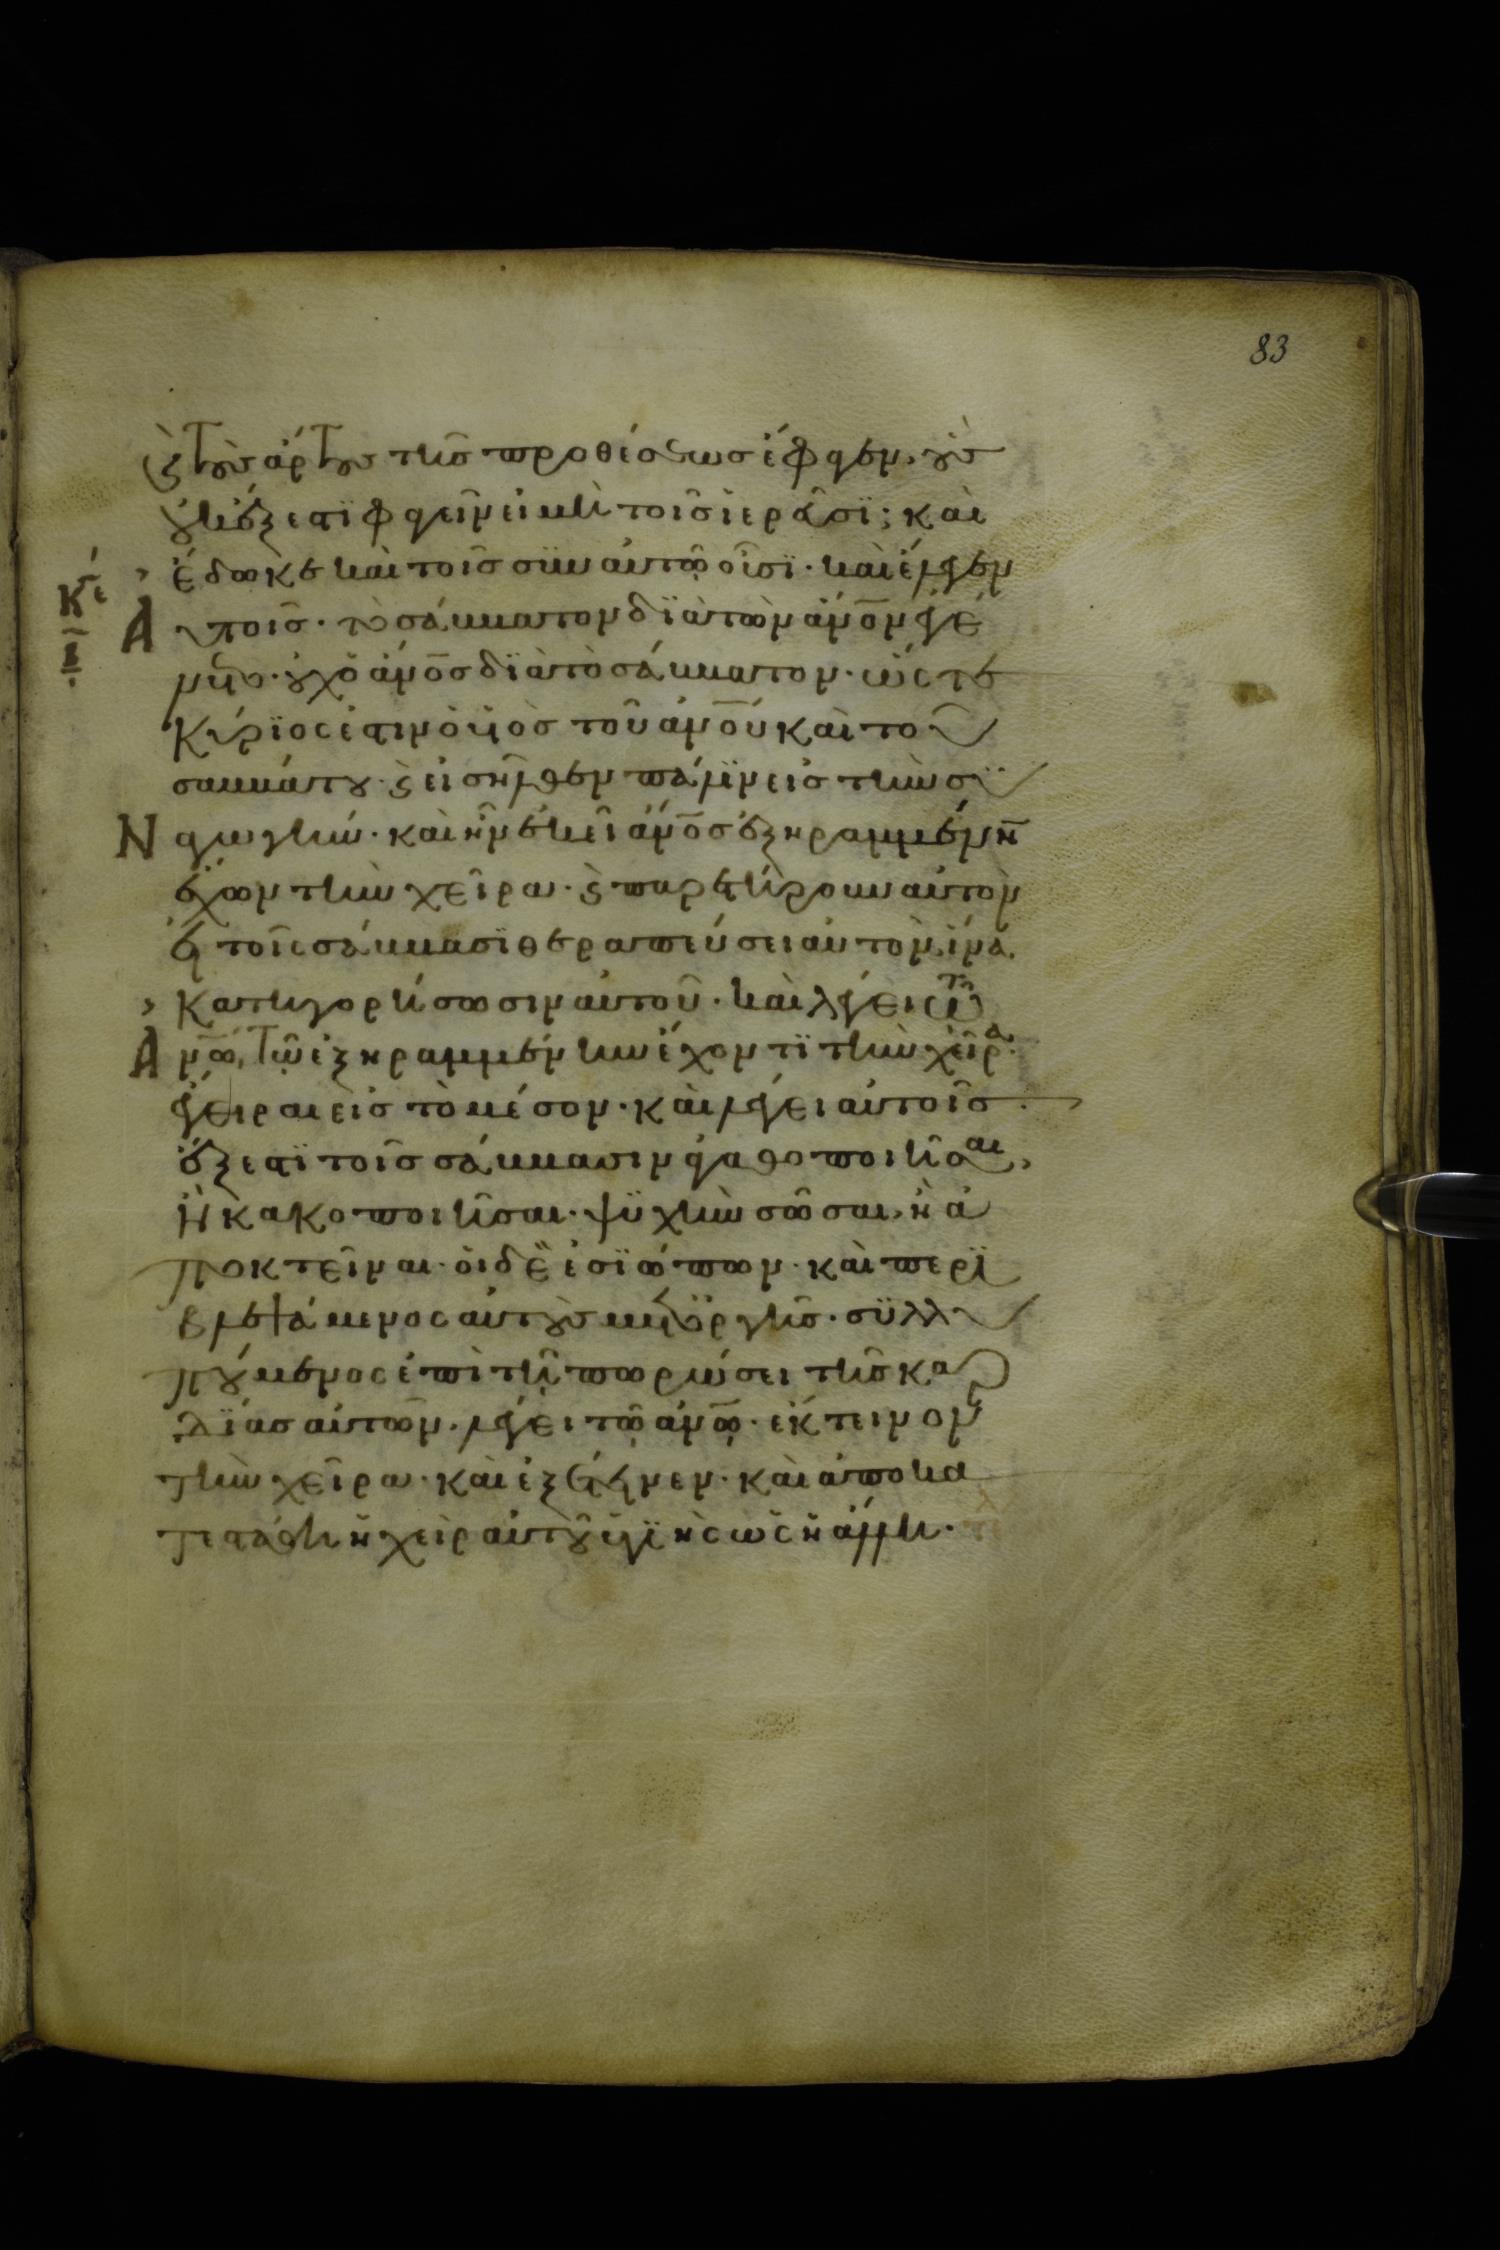 83
ϛ τοὺς ἄρτους τῆς προθέσεως ἔφαγεν, οὓς
οὐκ ἔξεστϊ φαγεῖν εἰ μὴ τοῖς ἱερεῦσϊ; καὶ
ἔδωκε καὶ τοῖς σὺν αὐτῷ οὖσϊ· καὶ ἔλεγεν
Κε ι
Αὐτοῖς· τὸ σάββατον δϊὰ τὸν ἄνον ἐγέ
νετο· οὐχ ὁ ἄνος δϊὰ τὸ σάββατον· ὥστε
Κύρϊος ἐστιν ὁ υἱὸς τοῦ ἀνου καὶ τοῦ
σαββάτου· ϛ εἰσῆλθεν πάλϊν εἰς τὴν συ
Ναγωγήν· καὶ ἦν ἐκεῖ ἄνος ἐξηραμμένην
ἔχων τὴν χεῖρα· ϛ παρετήρουν αὐτὸν
ἐν τοῖς σάββασϊ θεραπεύσει αὐτὸν, ἵνα
κατηγορήσωσιν αὐτοῦ· καὶ λέγει τῷ
Ανω, τῷ ἐξηραμμένην ἔχοντϊ τὴν χεῖρα·
ἔγειραι εἰς τὸ μέσον· καὶ λέγει αὐτοῖς·
ἔξεστϊ τοῖς σάββασιν ἀγαθοποιῆσαι,
ἢ κακοποιῆσαι· ψυχὴν σῶσαι, ἢ ἀ
ποκτεῖναι· οἱ δὲ ἐσϊώπων· καὶ περϊ
βλεψάμενος αὐτοὺς μετ ὀργῆς· συλλυ
πούμενος ἐπὶ τῇ πωρώσει τῆς καρ
δϊας αὐτῶν· λέγει τῷ ἀνω· ἔκτεινον
τὴν χεῖρα· καὶ ἐξέτεινεν· καὶ ἀποκα
τεστάθη ἡ χεὶρ αὐτοῦ ὑγϊὴς ὡς ἡ ἄλλη·